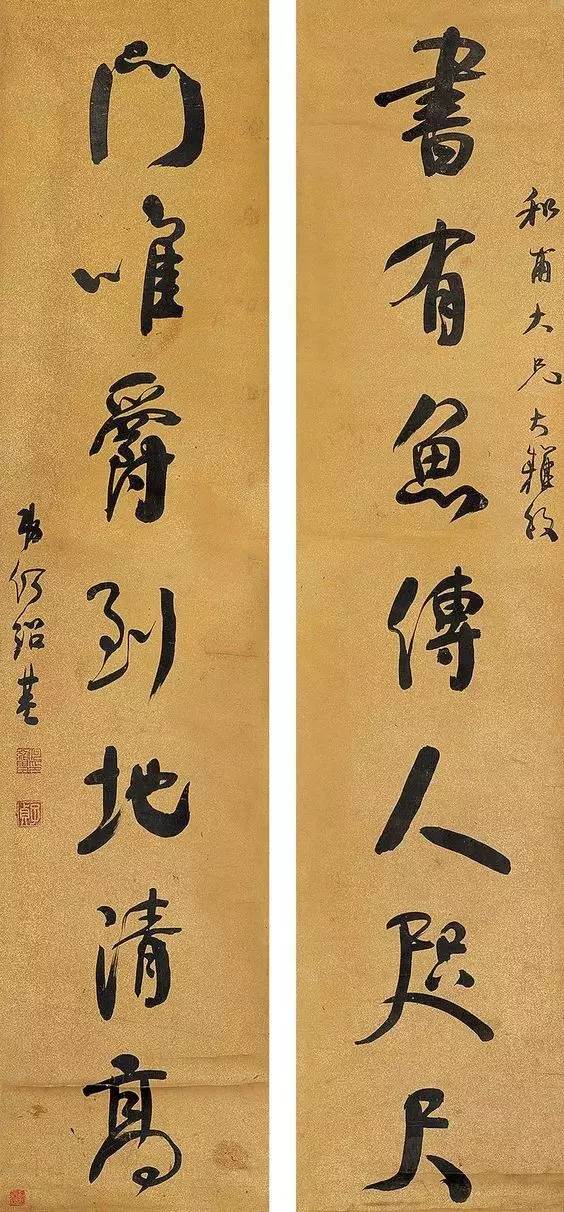 書有魚傳人咫尺
和甫大兄大雅
門唯爵到地清高
弟何紹基